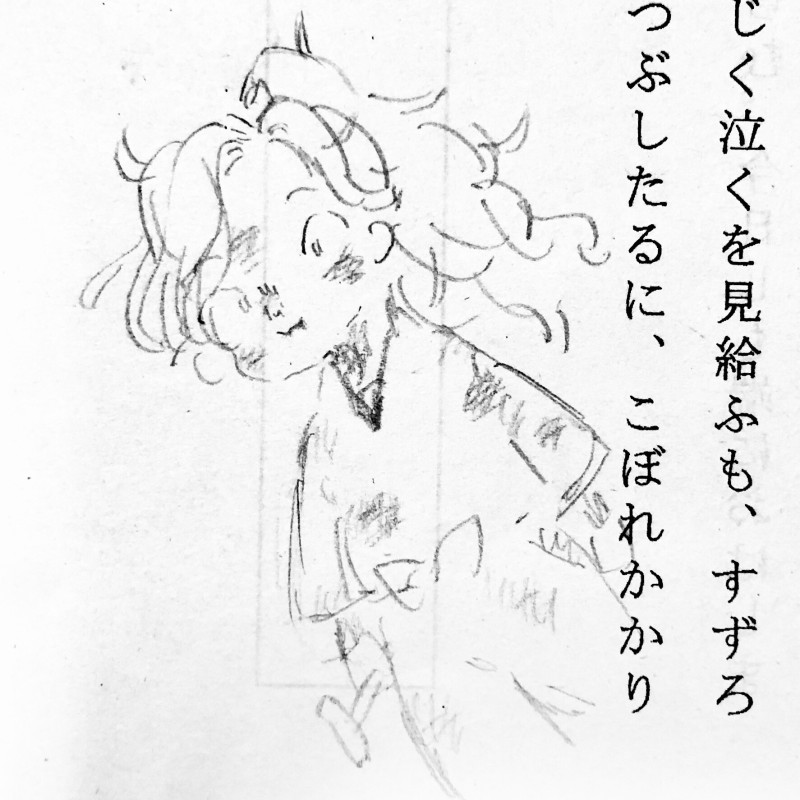 じく泣くを見給ふも、すずろ
つぶしたるに、こぼれかかり